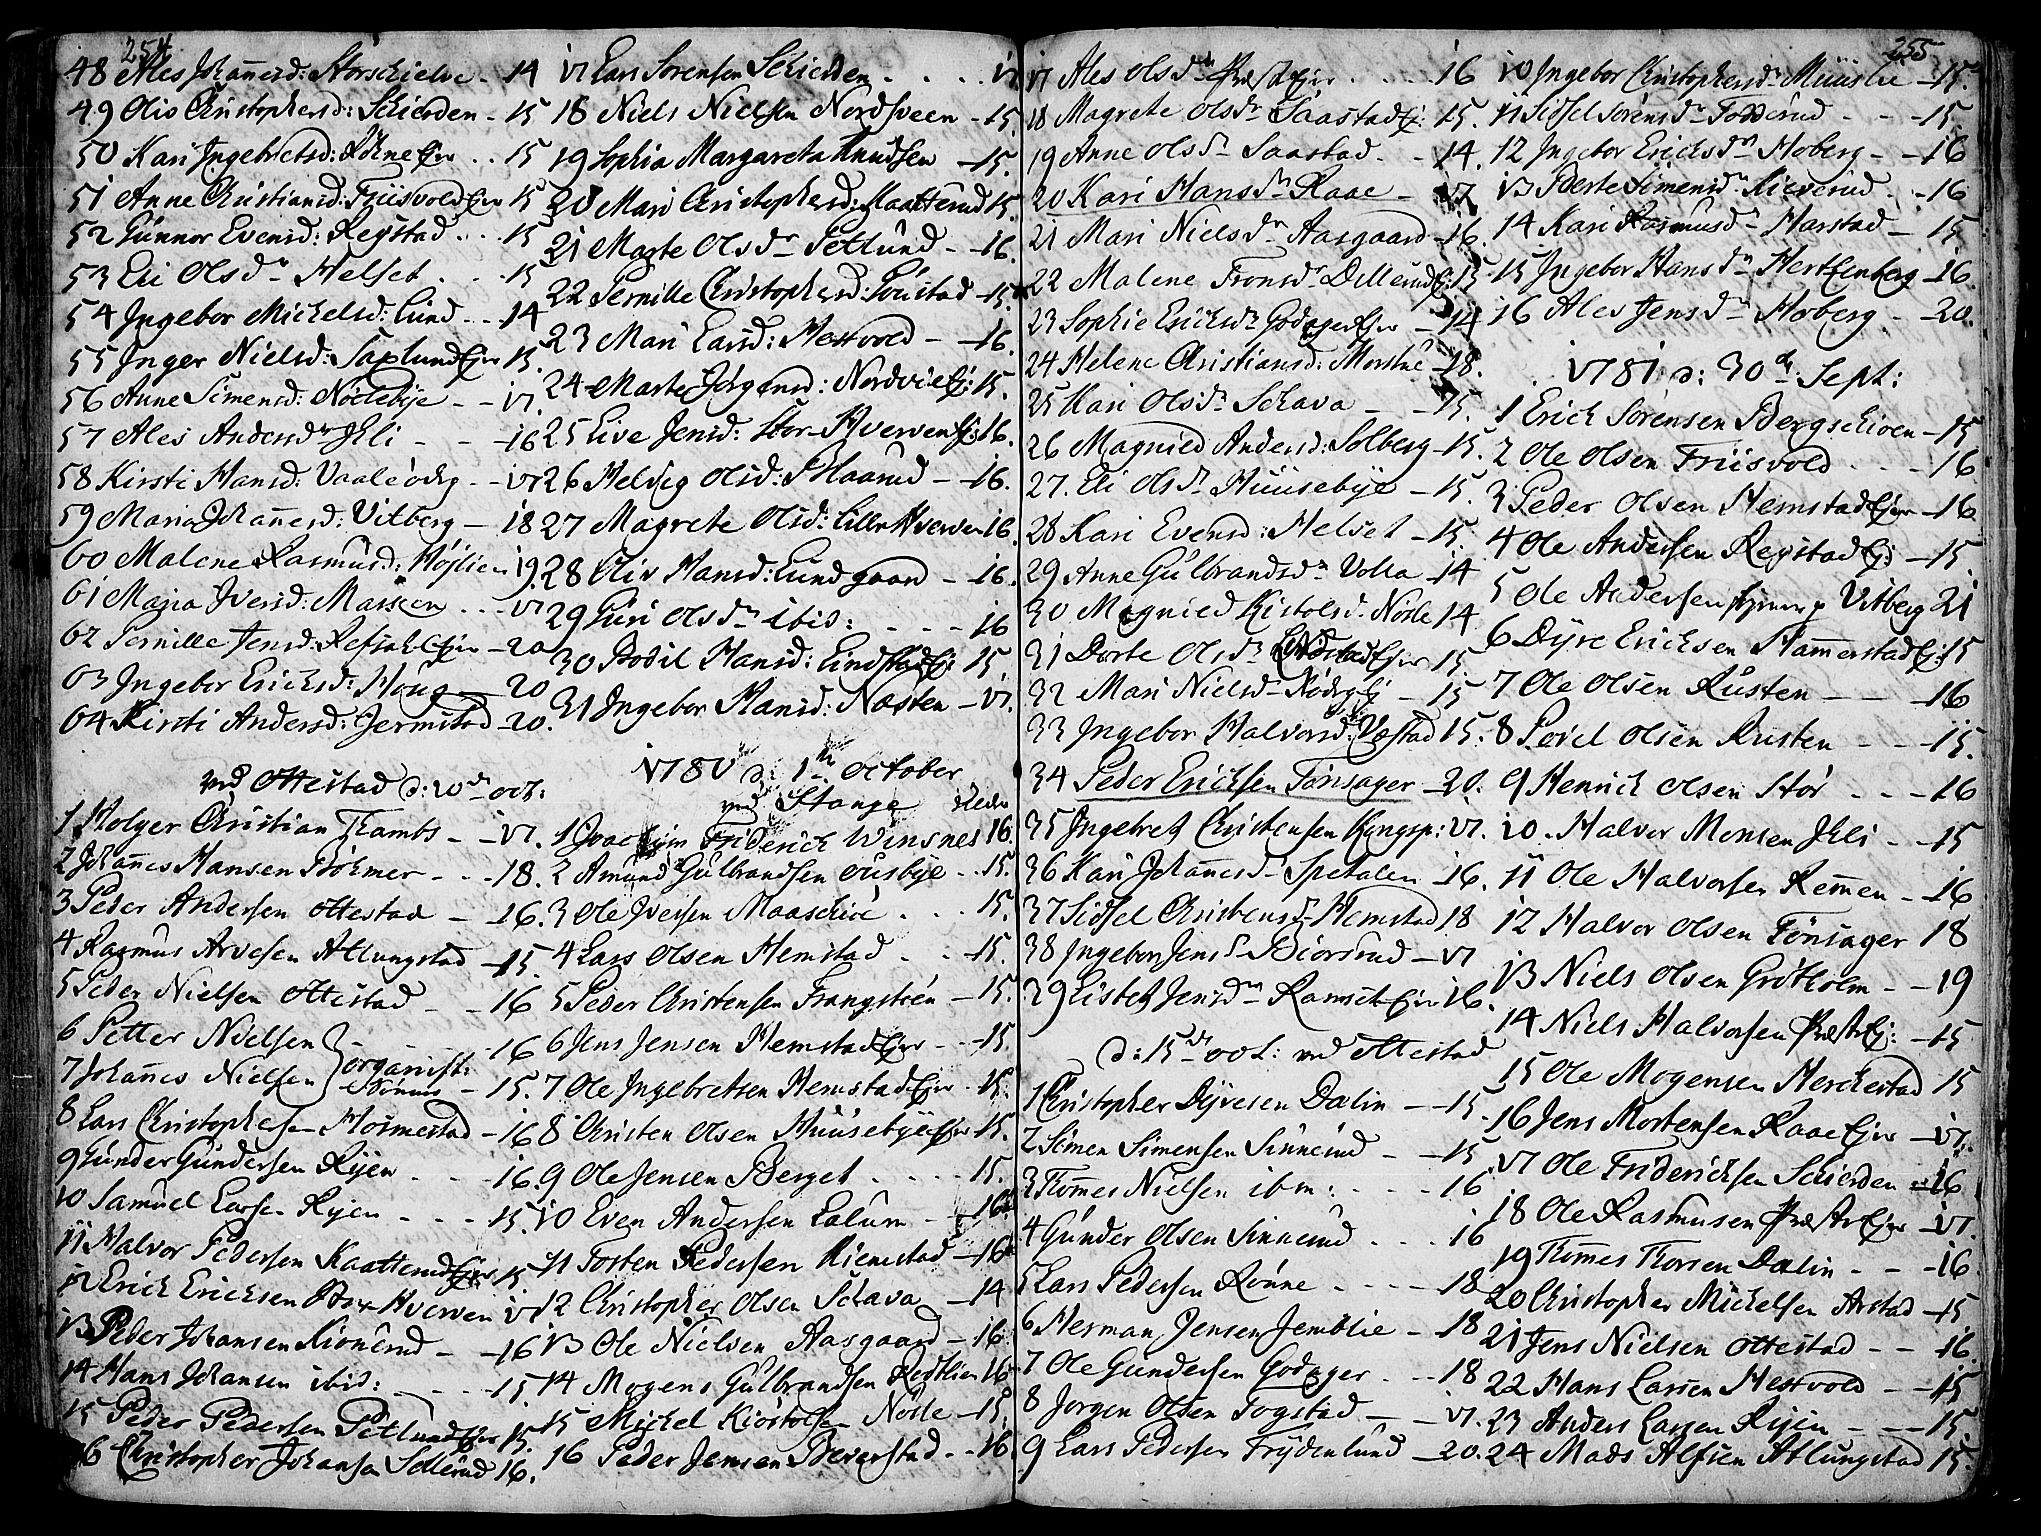 254
48 Ales Johannesd: Storschielve - 14
49 Oliv Christophersd: Schierden - 15
50 Kari Ingebretsd: Röhne Ejer - 15
51 Anne Christiansd: Friisvold Ejer 15
52 Gunnor Evensd: Regstad - 15
53 Eli Olsdr Helset - 15
54 Ingebor Michelsd: Lund - 14
55 Inger Nielsd: Saxlund Ejer 15.
56 Anne Simensd: Nöclebye - 17.
57 Ales Andersdr Ihli - 16
58 Kirsti Hansd: Vaaleödeg - 17
59 Maria Johannesd: Vitberg - 18
60 Malene Rasmusd: Höjlien 19.
61 Maria Iversd: Marseen - 17
62 Pernille Jensd: Refsahl Ejer - 20
63 Ingebor Ericksd: Houg - 20
64 Kirsti Andersd: Jermstad - 20.
ved Ottestad d: 10de oct:
1 Holger Christian Thambs - 17.
2 Johannes Hansen Böhmer - 18.
3 Peder Andersen Ottestad - 16.
4 Rasmus Arvesen Atlungstad - 15.
5 Peder Nielsen Ottestad - 16
6 Petter Nielsen - 16
7 Johannes Nielsen organist: - 15.
8 Lars Christophersen Hosmestad - 16
9 Gunder Gundersen Rÿen - 16
10 Samuel Larsen Rÿen - 15.
11 Halvor Pedersen Kaatterud Ejer 15
12 Erick Ericksen Stor Hverven 17
13 Peder Johansen Kionerud - 16
14 Hans Johansen ibid: - 15
15 Peder Pedersen Petlund Ejer 15.
16 Christopher Johansen Sellerud 16.
17 Lars Sorensen Schierden - 17
18 Niels Nielsen Nordsveen - 15.
19 Sophia Margareta Knudsen - 15.
20 Mari Christophersd: Kaatterud 15.
21 Marte Olsdr Petlund - 16.
22 Pernille Christophersd: Söustad - 15
23 Mari Larsd: Hestvold - 16.
24 Marte Jörgensd: Nordvie Ej: 15.
25 Live Jensd: Stor-Hverven Ej: 16.
26 Helvig Olsd: Skaarud - 16.
27 Magrete Olsd: Lille Hverven 16.
28 Oliv Hansd: Lundgaard - 16.
29 Guri Olsdr ibid: - 16
30 Bodil Hansd: Lindstad Ej: 15
31 Ingebor Hansd: Næsten - 17.
1780 d: 1te October
ved Stange Kirke
1 Joachim Friderich Winsnes 16.
2 Amund Gulbrandsen Ousbye - 15.
3 Ole Iversen Maaschive - 15.
4 Lars Olsen Hemstad - 15.
5 Peder Christensen Frangstöen - 15.
6 Jens Jensen Hemstad Ejer - 15
7 Ole Ingebretsen Hemstad Ejer - 15.
8 Christen Olsen Huusebye Ejer 15.
9 Ole Jensen Berget - 15.
10 Even Andersen Lalum - 16
11 Torsten Pedersen Kiemstad - 16
12 Christopher Olsen Schava - 14
13 Ole Nielsen Aasgaard - 16
14 Mogens Gulbrandsen Rosthien 16
15 Michel Kiöstolsen Nosle - 15.
16 Peder Jensen Beverstad - 16
255
17 Ales Olsdr Præst Ejer - 16
18 Magrete Olsdr Saastad Ej: 15.
19 Anne Olsdr Saastad - 14.
20 Kari Hansdr Raae - 17.
21 Mari Nielsdr Aasgaard - 16.
22 Malene Tronsdr Dillerud Ej: 15
23 Sophie Ericksdr Godager Ejer - 14
24 Helene Christiansd: Morstue - 18.
25 Kari Olsdr Schava - 15.
26 Magnied Andersd: Solberg - 15.
27. Eli Olsdr Huusebÿe - 15.
28 Kari Evensd: Helset - 15.
29 Anne Gulbrandsdr Volla - 14
30 Magnied Kistolsd. Nosle 14
31 Dorte Olsdr Ejer 15
32 Mari Nielsdr Nödeg Ej - 15
33 Ingebor Halvorsd: Vestad 15.
34 Peder Ericksen Tönsager - 20.
35 Ingebret Christensen Kongsp: 17.
36 Kari Johannesdr Spetalen - 16.
37 Sidsel Christensdr Hemstad 18
38 Ingebor Jensdr Biörsrud - 17
39 Lisbet Jensdr Ramset Ejer 16.
d: 15de oct: ved Ottestad
1 Christopher Dÿresen Dælin - 15.
2 Simen Simensen Sinnerud - 15
3 Thomes Nielsen ibm: - 16
4 Gunder Olsen Sinnerud - 16
5 Lars Pedersen Rönne - 18
6 Herman Jensen Jemblie - 18
7 Ole Gundersen Godager - 18
8 Jorgen Olsen Togstad - 17.
9 Lars Pedersen Frÿdenlund - 20.
10 Ingebor Christophersdr Muuslie - 15.
11 Sidsel Sörensdr Fodderud - 15
12 Ingebor Ericksdr Hoberg - 16
13 Berte Simensdr Kieverud - 16
14 Kari Rasmusdr Harstad - 15
15 Ingebor Hansdr Hertzenberg - 16.
16 Ales Jensdr Hoberg - 20.
1781 d: 30de Sept:
1 Erich Sörensen Bergschioen - 15
2 Ole Olsen Friisvold - 16
3 Peder Olsen Hemstad Ejer - 16.
4 Ole Andersen Regstad Ej: - 15.
5 Ole Andersen Vitberg 21
6 Dÿre Ericksen Hammerstad Ej: 15
7 Ole Olsen Rusten - 16
8 Povel Olsen Rusten - 15.
9 Henrich Olsen Stor - 16
10. Halvor Monsen Ihli - 15
11 Ole Halvorsen Remmen - 16
12 Halvor Olsen Tönsager 18
13 Niels Olsen Grötholm - 19
14 Niels Halvorsen Præst Ej: - 15
15 Ole Mogensen Herckestad 15
16 Jens Mortensen Raae Ejer - 17.
17 Ole Friderichsen Schierden - 16
18 Ole Rasmusen Præst Ejer - 17.
19 Thomes Thorsen Dælin - 16
20 Christopher Michelsen Arstad - 15
21 Jens Nielsen Ottestad - 16
22 Hans Larsen Hestvold - 15
23 Anders Larsen Rÿen - 15.
24 Mads Alfsen Atlungstad 15.